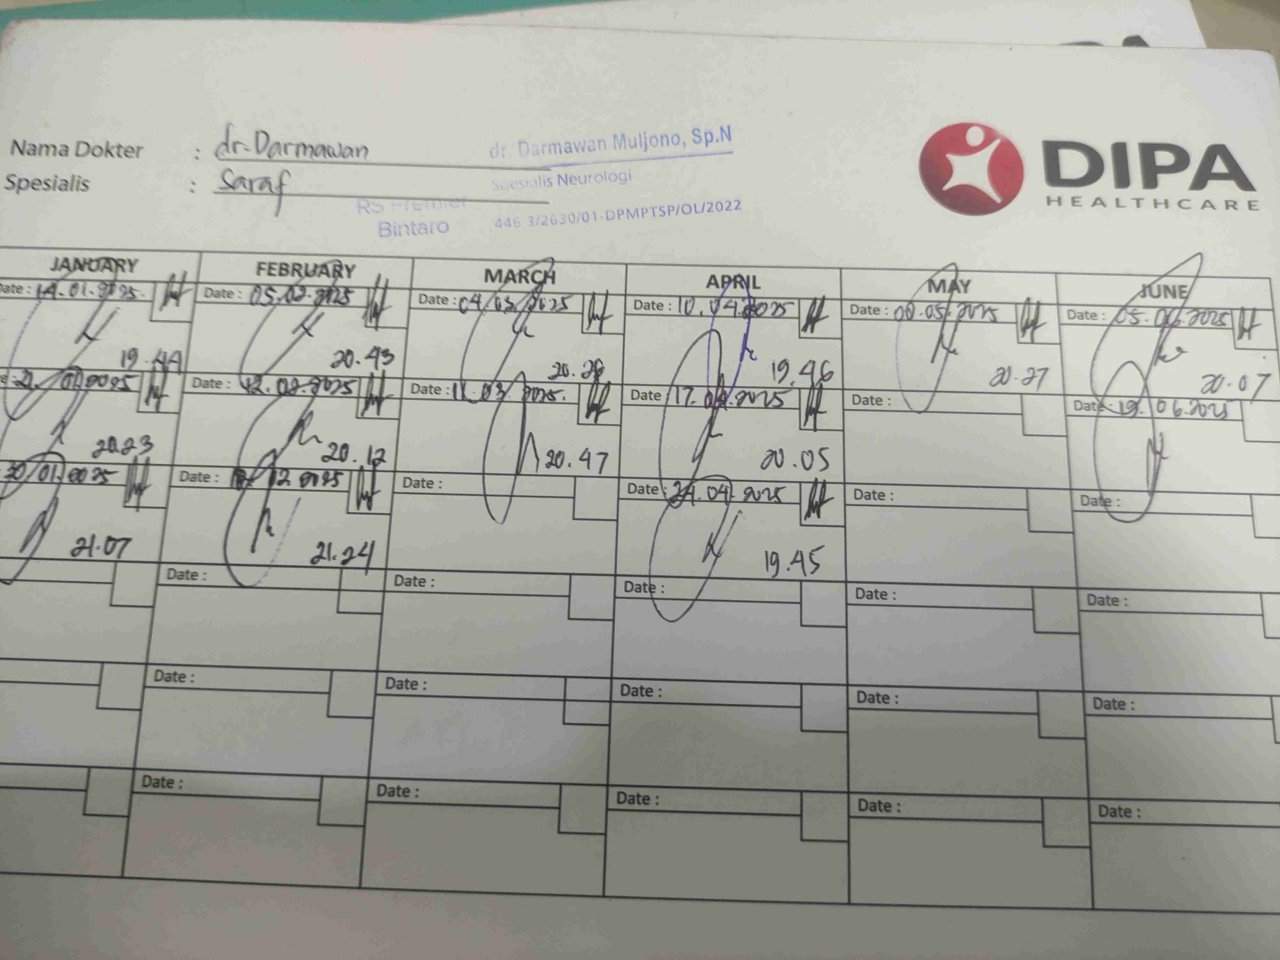 Nama Dokter : dr. Darmawan
Spesialis : Saraf
dr. Darmawan Muljono, Sp.N
Spesialis Neurologi
RS Premier
Bintaro
446.3/2630/01-DPMPTSP/OL/2022
DIPA
HEALTHCARE
JANUARY FEBRUARY MARCH APRIL MAY JUNE
Date: 14.01.2025. Date: 05.02.2025 Date: 04.03.2025 Date: 10.04.2025 Date: .05.2025 Date: 05.06.2025
19.44 20.43 19.46 20.27 20.07
.01.2025 Date: 12.02.2025 Date: 11.03.2025. Date: 17.04.2025 Date: Date: 19.06.2025
20.23 20.12 20.47 20.05
30.01.2025 Date: Date: Date: 24.04.2025 Date: Date:
21.07 21.24 19.45
Date: Date: Date: Date: Date:
Date: Date: Date: Date: Date:
Date: Date: Date: Date: Date: